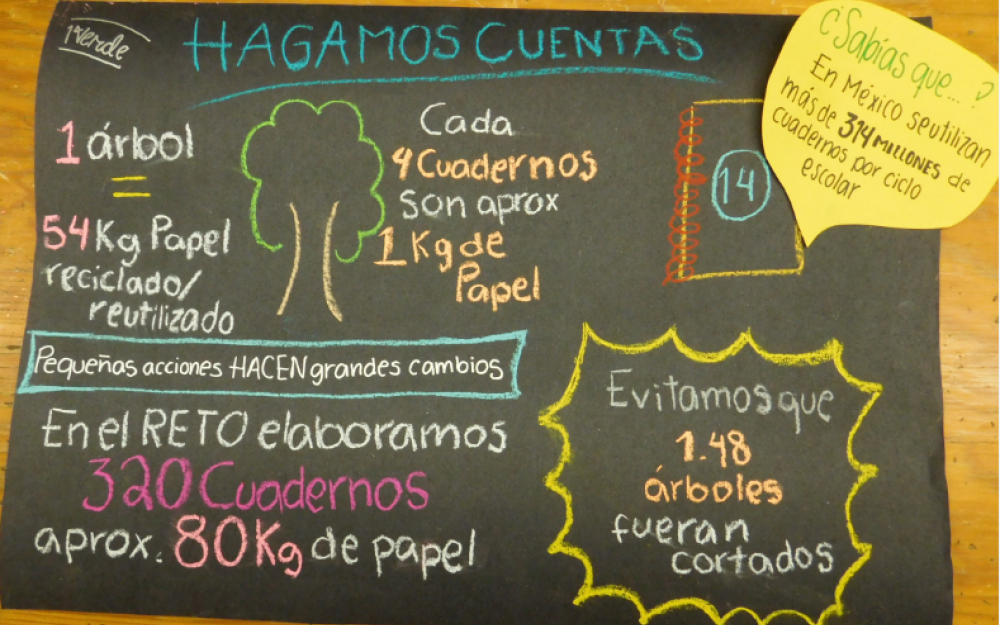 1º Verde
HAGAMOS CUENTAS
1 árbol
=
54 Kg Papel
reciclado/
reutilizado
Cada
4 Cuadernos
son aprox
1 Kg de
Papel
14
¿Sabías que...?
En México se utilizan
más de 314 MILLONES de
cuadernos por ciclo
escolar
Pequeñas acciones HACEN grandes cambios
En el RETO elaboramos
320 Cuadernos
aprox. 80Kg de papel
Evitamos que
1.48
árboles
fueran
cortados